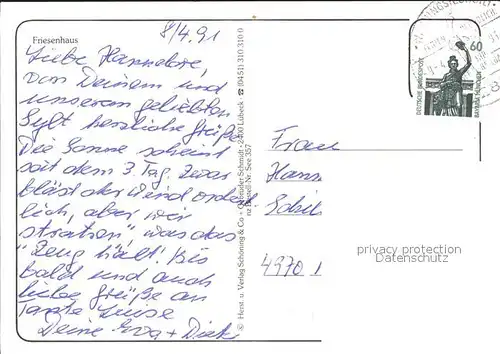 Friesenhaus
8/4.91
Liebe Hannelore,
von Deinem und
unserem geliebten
Sylt herzliche Grüße.
Die Sonne scheint
seit dem 3. Tag. Zwar
bläst der Wind ordent-
lich, aber wir
"strahlen", was das
Zeug hält! Bis
bald und auch
liebe Grüße an
Tante
Deine Eva + Dieter
© Herst. u. Verlag Schöning & Co + Gebrüder Schmidt · 2400 Lübeck · ☎ (0451) 310 310 0
Bestell-Nr. See 357
60
DEUTSCHE BUNDESPOST
BAVARIA MÜNCHEN
Frau
Hann
4970 
privacy protection
Datenschutz